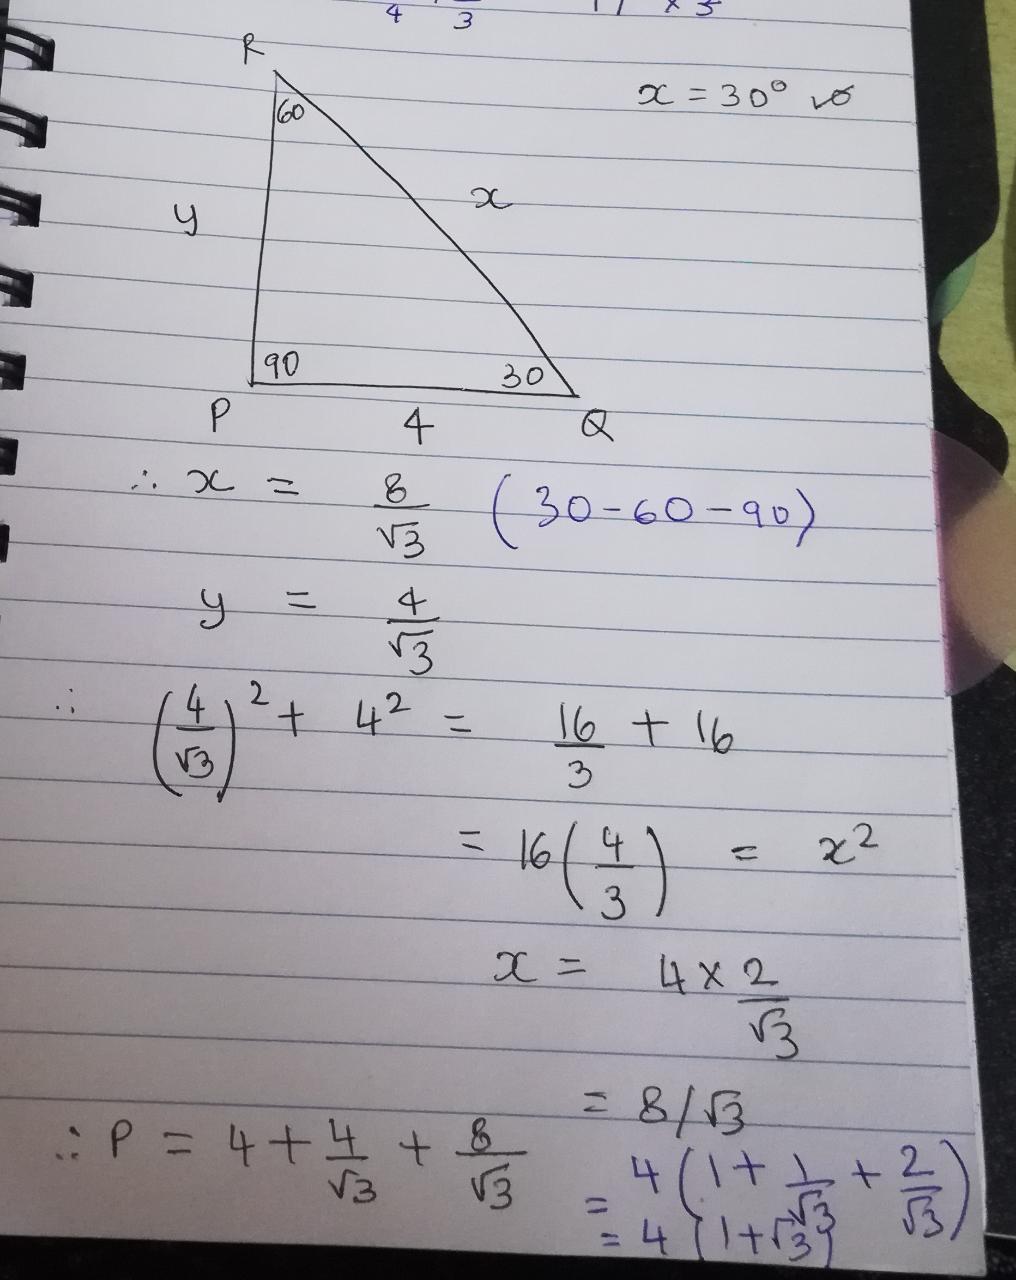 4 3 17 × 5
R
x = 30°
60
y
x
90
30
P
4
Q
∴ x = 8/√3 (30-60-90)
y = 4/√3
∴ (4/√3)² + 4² = 16/3 + 16
= 16(4/3) = x²
x = 4 × 2/√3
= 8/√3
∴ P = 4 + 4/√3 + 8/√3
= 4(1 + 1/√3 + 2/√3)
= 4(1+√3)